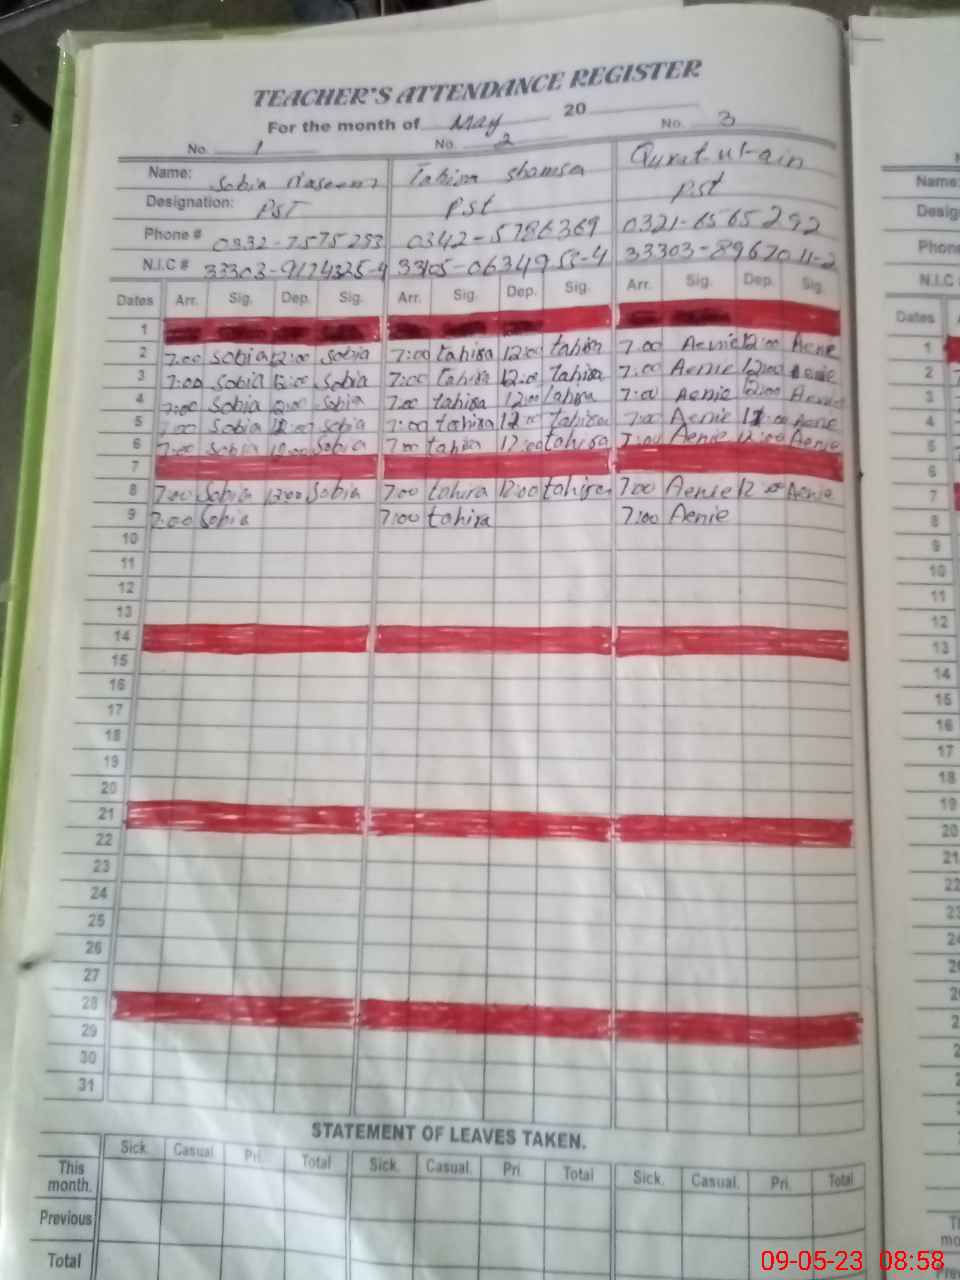 TEACHER'S ATTENDANCE REGISTER
For the month of May 20
No. 1 No. 2 No. 3
Name: Sobia Naseem Tahira Shamsa Qurat ul-ain
Designation: PST Pst Pst
Phone # 0332-7575293 0342-5786369 0321-6565292
N.I.C # 33303-9174325-4 33105-0634955-4 33303-8967011-2
Dates Arr. Sig. Dep. Sig. Arr. Sig. Dep. Sig. Arr. Sig. Dep. Sig.
1
2 7:00 Sobia 12:00 Sobia 7:00 tahira 12:00 tahira 7.00 Aenie 12:00 Aenie
3 7:00 Sobia 12:00 Sobia 7:00 tahira 12:00 tahira 7.00 Aenie 12:00 Aenie
4 7:00 Sobia 12:00 Sobia 7:00 tahira 12:00 tahira 7:00 Aenie 12:00 Aenie
5 7:00 Sobia 12:00 Sobia 7:00 tahira 12:00 tahira 7:00 Aenie 12:00 Aenie
6 7:00 Sobia 12:00 Sobia 7:00 tahira 12:00 tahira 7:00 Aenie 12:00 Aenie
7
8 7:00 Sobia 12:00 Sobia 7:00 tahira 12:00 tahira 7:00 Aenie 12:00 Aenie
9 7:00 Sobia 7:00 tahira 7:00 Aenie
10
11
12
13
14
15
16
17
18
19
20
21
22
23
24
25
26
27
28
29
30
31
STATEMENT OF LEAVES TAKEN.
Sick. Casual Pri. Total Sick. Casual. Pri. Total Sick. Casual. Pri. Total
This month.
Previous
Total
Name:
Phone
N.I.C
Dates
1
2
3
4
5
6
7
8
9
10
11
12
13
14
15
16
17
18
19
20
21
09-05-23 08:58